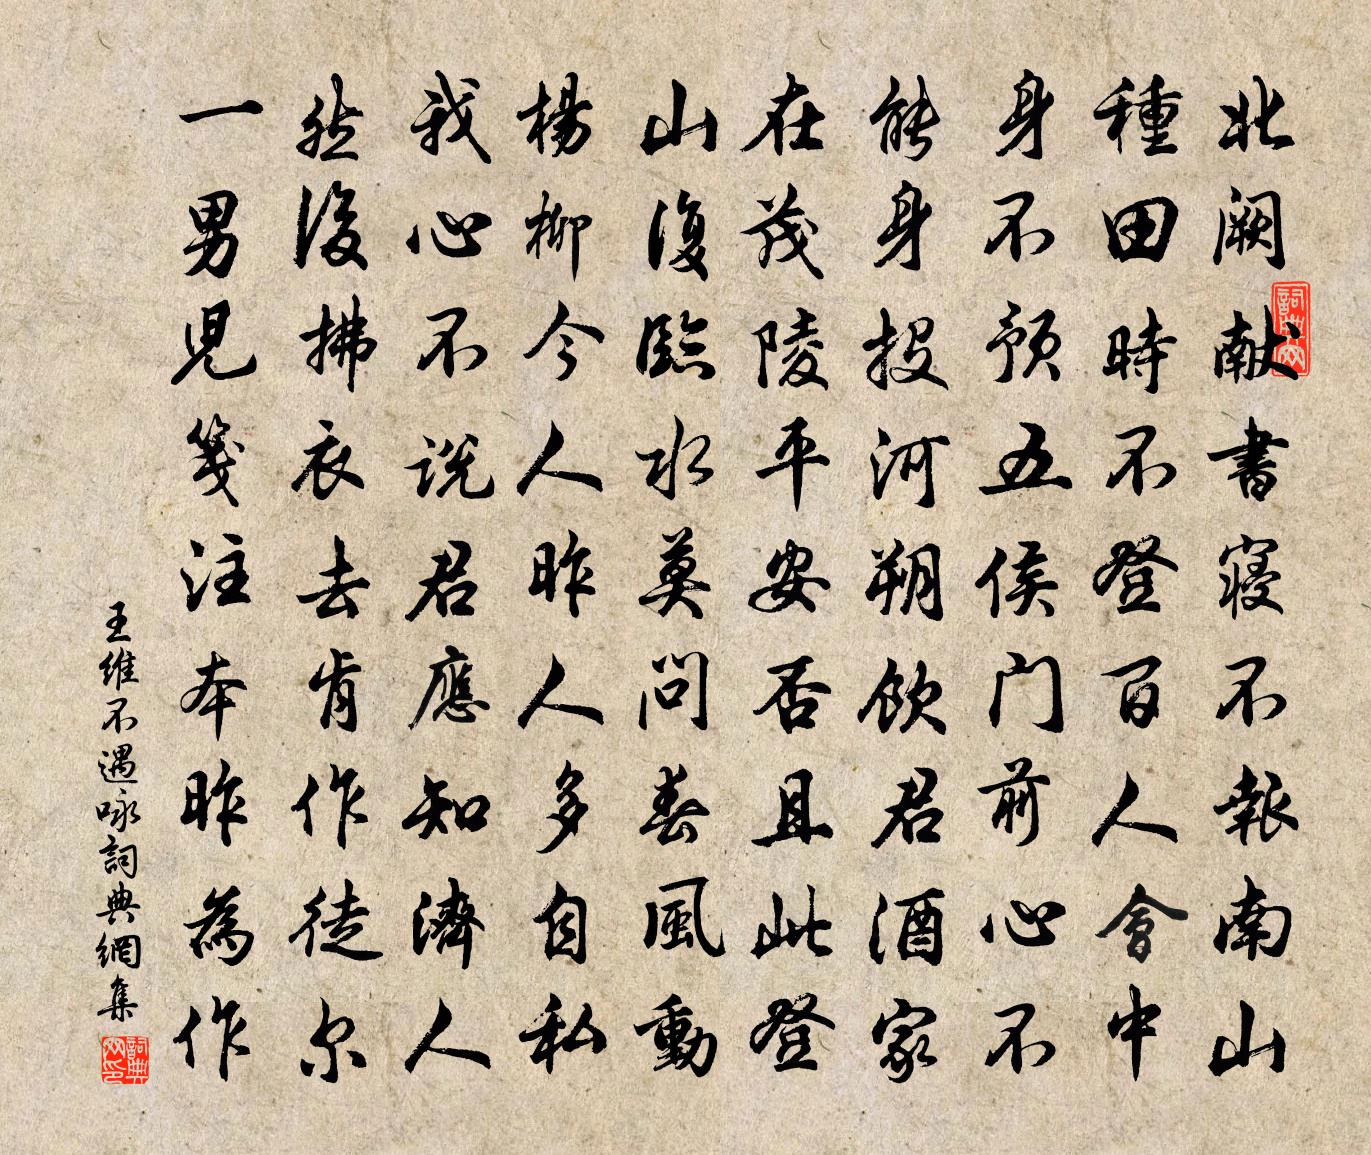 北阙献書寝不報南山
種田時不登百人會中
身不預五侯门前心不
能身投河朔飲君酒家
在茂陵平安否且此登
山復臨水莫問春風動
楊柳今人昨人多自私
我心不説君應知濟人
然後拂衣去肯作徒尔
一男兒箋注本昨為作
王維不遇咏詞典網集
詞典网
詞典网印